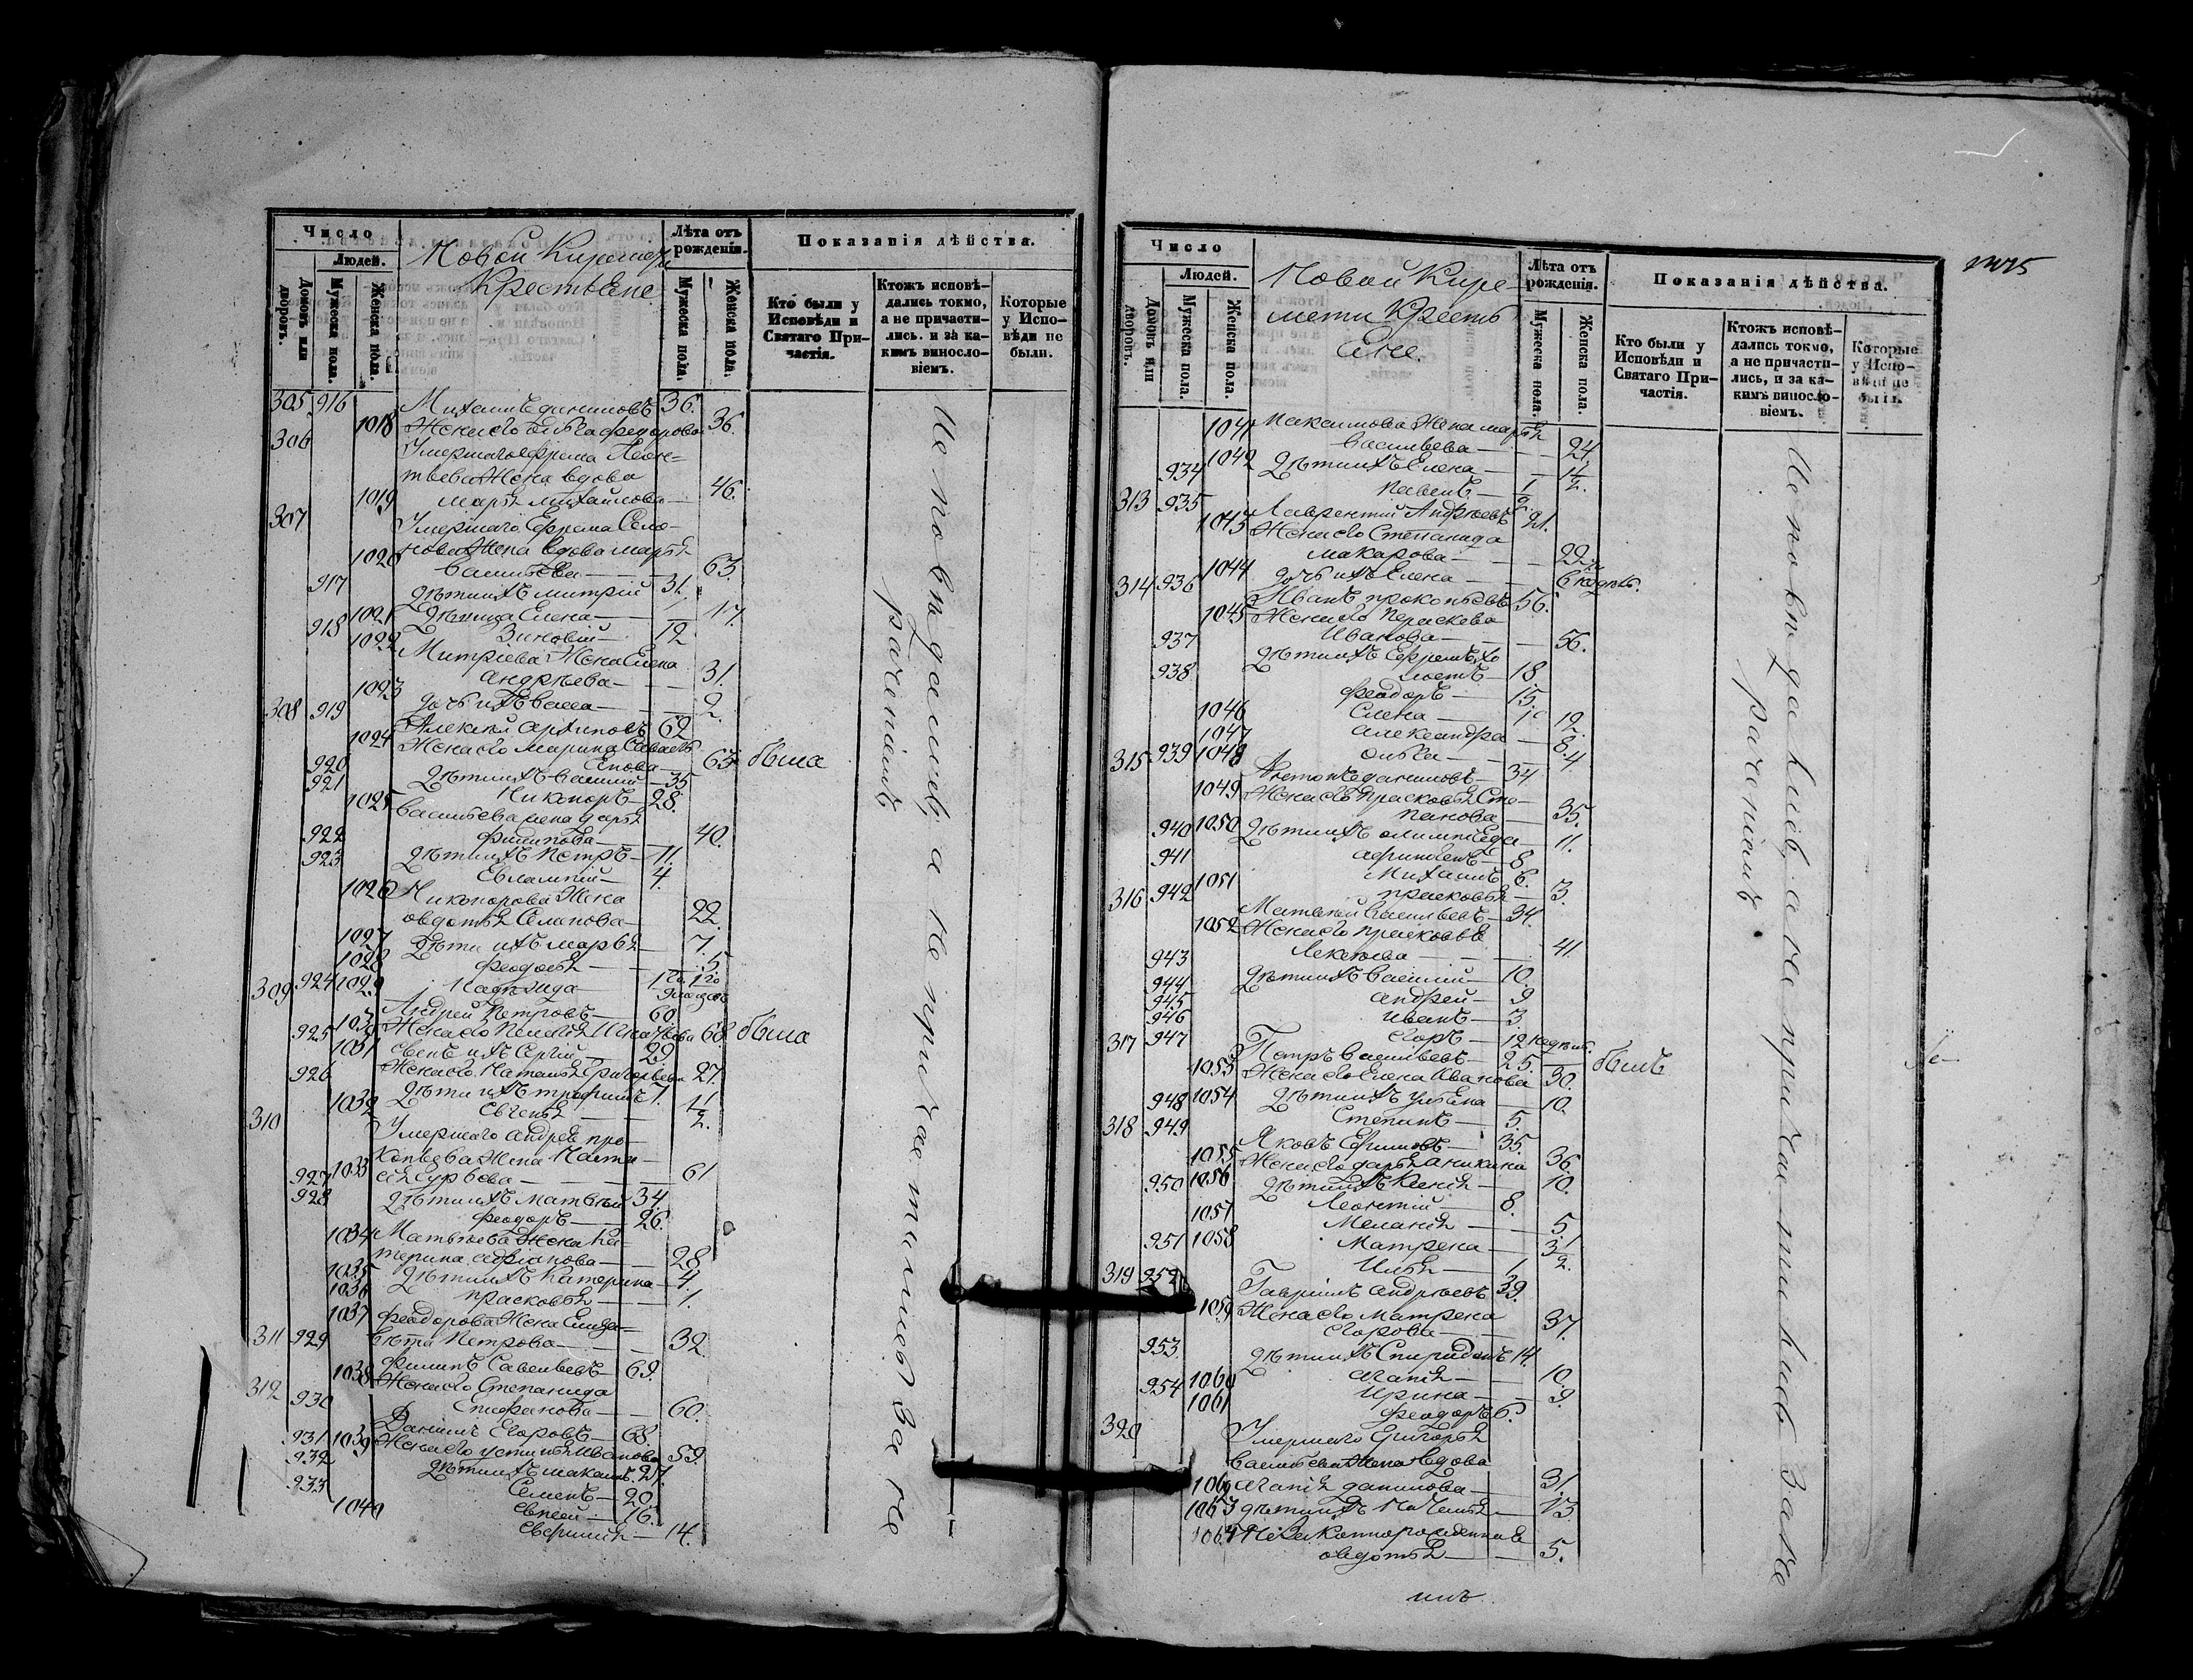 Число
Людей.
Домовъ или дворовъ.
Мужеска пола.
Женска пола.
Новой Киремети
Крестьяне
Лѣта отъ рожденія.
Мужеска пола.
Женска пола.
Показанія дѣйства.
Кто были у Исповѣди и Святаго Причастія.
Ктожъ исповѣдались токмо, а не причастились. и за какимъ винословіемъ.
Которые у Исповѣди не были.
305 916 Михаилъ даниловъ 36.
1018 Жена его Ольга федорова 36.
306 Умершаго Ефрема Леон-
тьева Жена вдова
1019 Марья михайлова — 46.
307 Умершаго Ефрема Семе-
нова Жена вдова марья
1020 Васильева — 63.
917 Дѣти ихъ митрій 31.
1021 Дѣвица Елена — 17.
918 Зиновій — 12
1022 Митріева Жена Елена
андрѣева — 31.
1023 дочь ихъ васса — 2.
308 919 Алексѣй архиповъ 62
1024 Жена его марина Савасть
янова — 63 была
920 Дѣти ихъ василий — 35
921 Никоноръ — 28.
1025 Васильева жена дарья
филипова — 40.
922 Дѣти ихъ Петръ — 11.
923 Евлампій — 4.
1026 Никонорова Жена
овдотья Семенова — 22.
1027 Дѣти ихъ марья — 7.
1028 феодосья — 5.
1029 Надежда — 1
309 924 Андрей Петровъ — 60.
1030 Жена его Пелагея Игнатьева 68 была
925 сынъ ихъ Сергій — 29
1031 Жена его Наталья Григорьева 27.
926 Дѣти ихъ трофимъ 7.
1032 Евгенья — 1/2.
310 Умершаго андрея про-
копьева Жена Наста-
1033 сья Гурьева — 61
927 Дѣти ихъ Матвѣй 34.
928 феодоръ — 26.
1034 Матвѣева Жена Ка-
терина адріанова — 28
1035 Дѣти ихъ Катерина — 4.
1036 прасковья — 1.
1037 феодорова Жена Елиза-
вета Петрова — 32
311 929 Филипъ Савельевъ — 69.
1038 Жена его Степанида
Епифанова — 60.
312 930 Даніилъ Егоровъ — 68
1039 Жена его устинья Иванова 59
931 Дѣти ихъ макаимъ 27.
932 Семенъ — 20.
933 Евсей — 16.
1040 Евфимія — 14.
Исповѣдались, а не причастились за не
раченіемъ
Число
Людей.
Домовъ или дворовъ.
Мужеска пола.
Женска пола.
Новой Кире-
мети Кресть
яне.
Лѣта отъ рожденія.
Мужеска пола.
Женска пола.
Показанія дѣйства.
Кто были у Исповѣди и Святаго Причастія.
Ктожъ исповѣдались токмо, а не причастились, и за какимъ винословіемъ.
Которые у Исповѣди не были.
1041 Максимова Жена марья
Васильева — 24
1042 Дѣти ихъ Елена — 1 1/2.
934 Павелъ — 1/2
313 935 Лаврентий Андрѣевъ 21.
1043 Жена его Степанида
макарова — 22
1044 дочь ихъ Елена — 6 недѣль.
314 936 Иванъ прокопьевъ 56.
1045 Жена его Параскева
Иванова — 56.
937 Дѣти ихъ Ефремъ хо
лостъ — 18
938 феодоръ — 15.
1046 Елена — 12.
1047 александра — 8.
1048 ольга — 4
315 939 Антонъ даниловъ — 34
1049 Жена его прасковья Сте-
панова — 35.
1050 Дѣти ихъ олимпіяда — 11.
940 8.
941 Михаилъ 6.
1051 прасковья — 3.
316 942 Матвѣй Васильевъ — 34.
1052 Жена его прасковья
Алексѣева — 41.
943 Дѣти ихъ Василий — 10.
944 андрей — 9
945 иванъ — 3.
946 Егоръ — 12 недѣль.
317 947 Петръ Васильевъ — 25. былъ
1053 Жена его Елена Иванова 30.
1054 Дѣти ихъ ульяна — 10.
948 Степанъ — 5.
318 949 Яковъ Ефимовъ — 35.
1055 Жена его дарья аникина 36.
1056 Дѣти ихъ Ксенія — 10.
950 Леонтій — 8.
1057 Меланія — 5.
1058 Матрена — 3 1/2.
951 Илья — 1.
319 952 Гавріилъ андрѣевъ 39.
1059 Жена его Матрена
Егорова — 37.
953 Дѣти ихъ Спиридонъ 14
1060 агапія — 10.
1061 Ирина — 9.
954 феодоръ 6.
320 Умершаго Григорья
Васильева Жена вдова
1062 агапія данилова — 31.
1063 дѣти ихъ Наталья — 13
1064 Незаконнорожденная
овдотья — 5.
Исповѣдались, а не причастились за не
раченіемъ